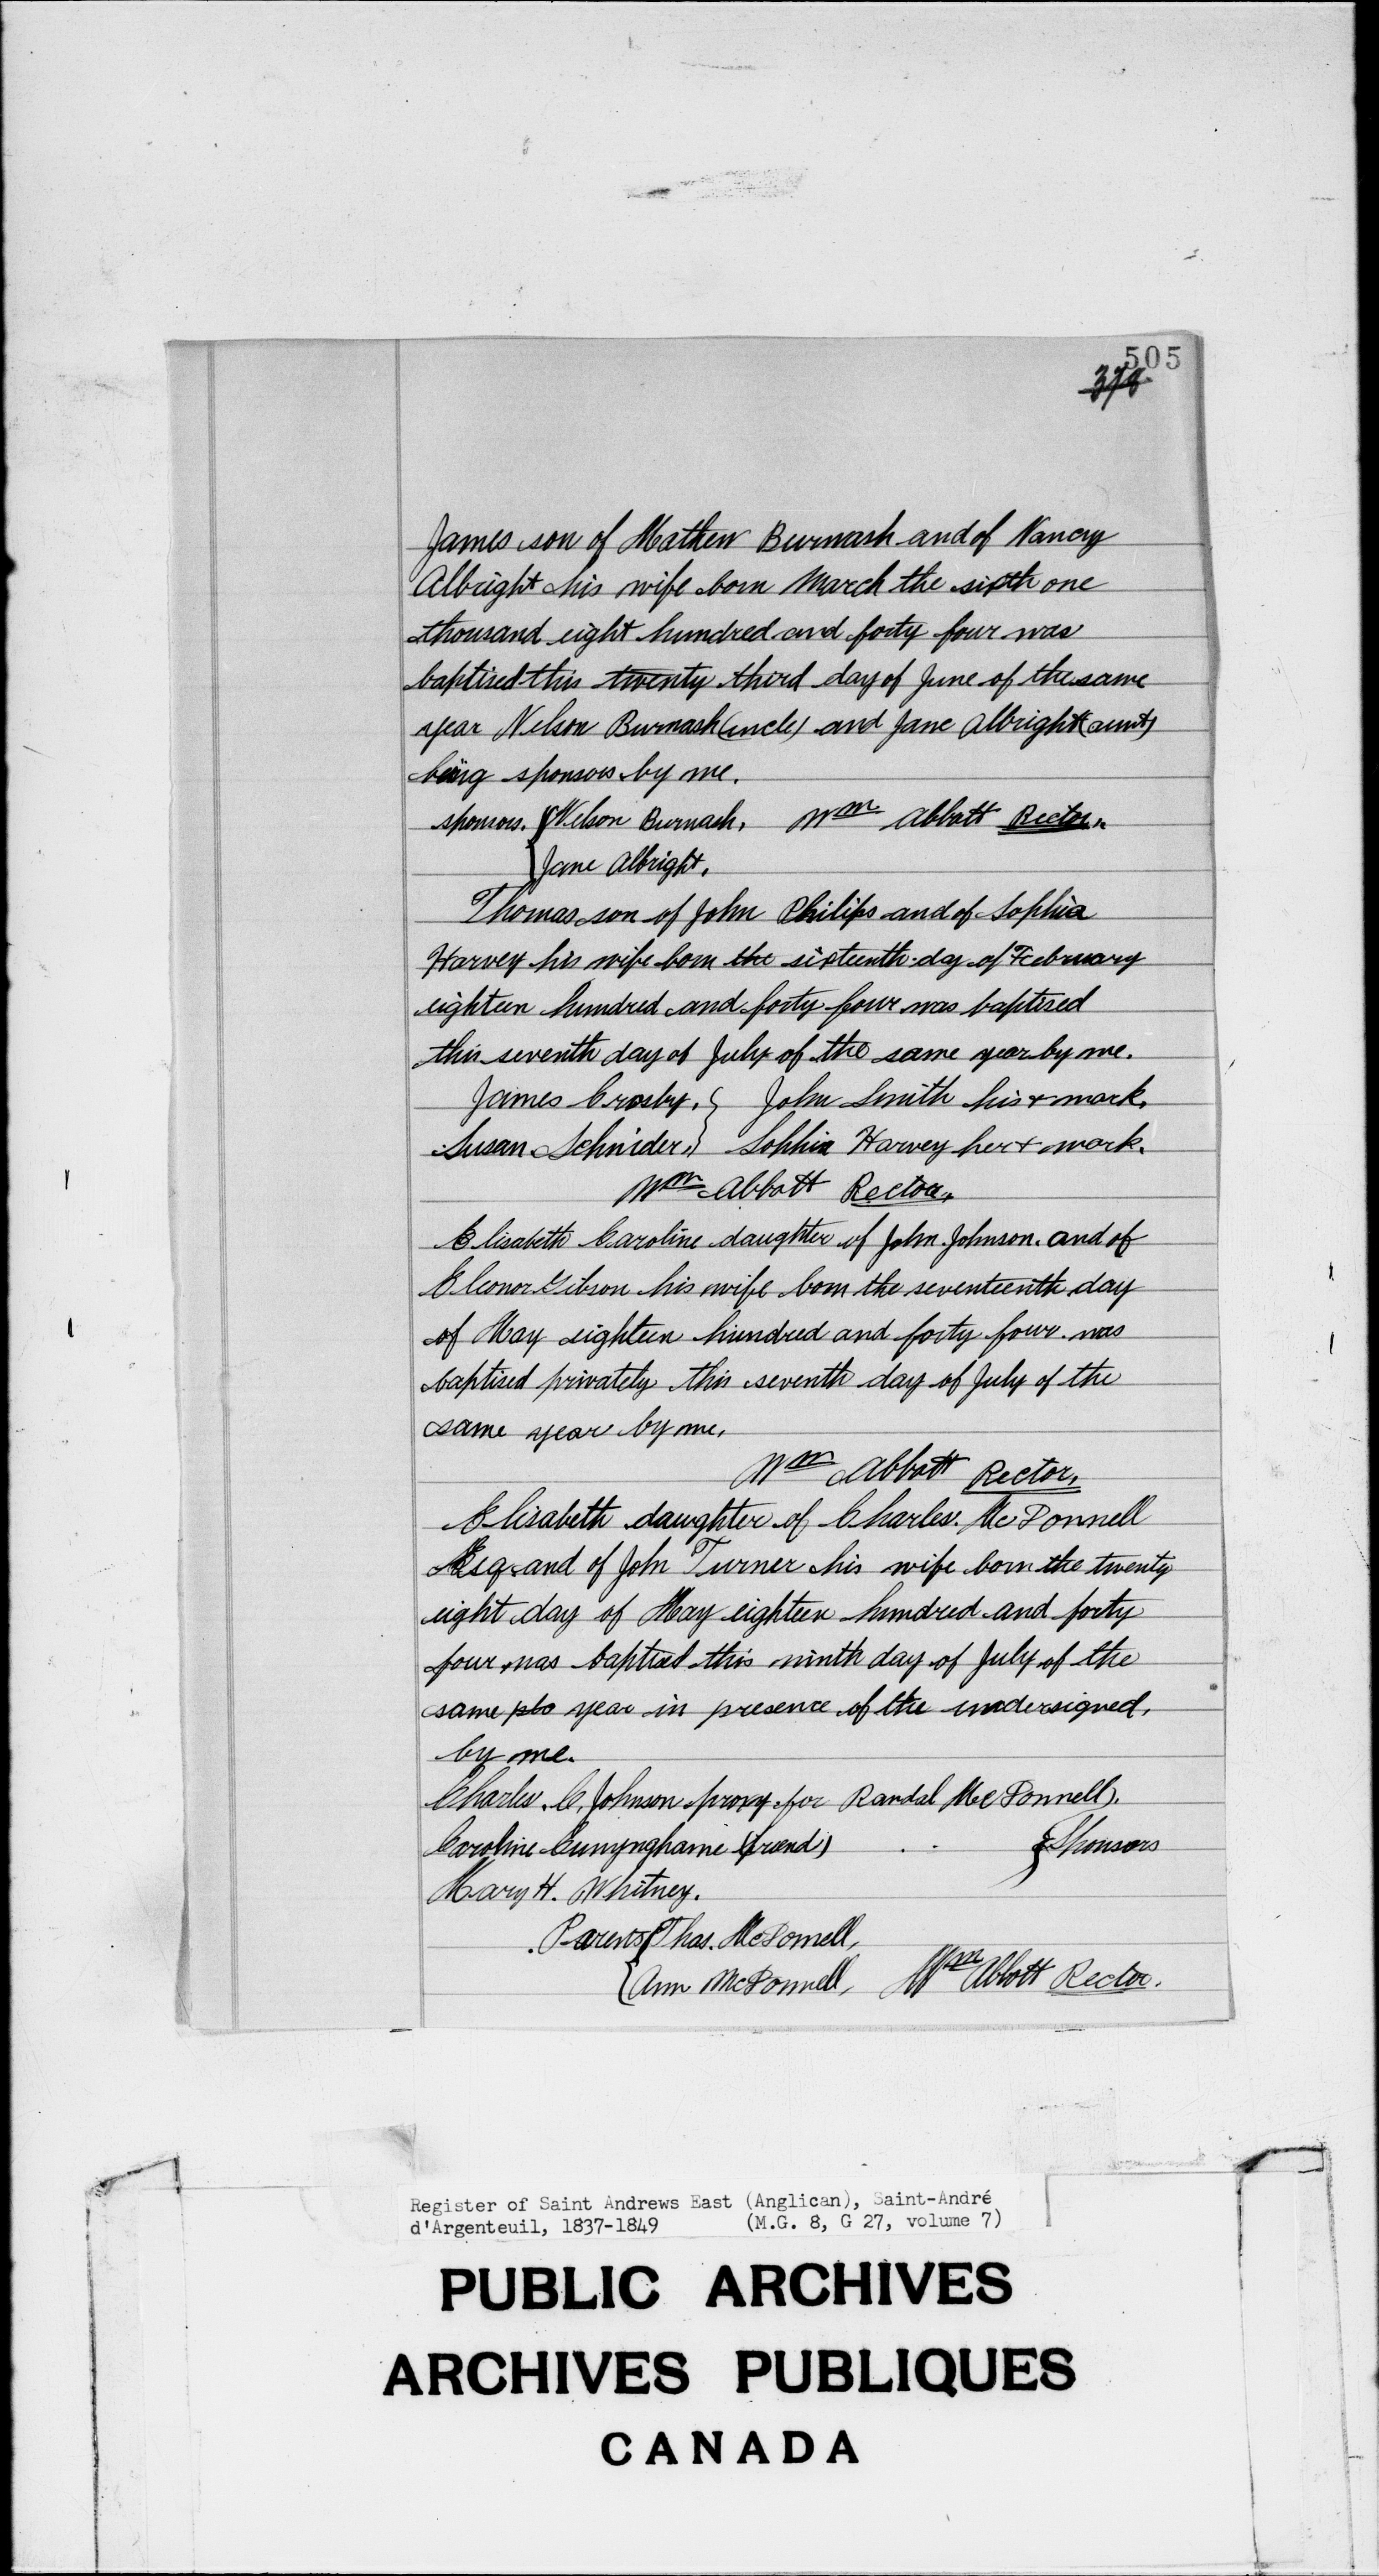 505
378
James son of Mathew Burnash and of Nancy
Albright his wife born March the sixth one
thousand eight hundred and forty four was
baptised this twenty third day of June of the same
year Nelson Burnash (uncle) and Jane Albright (aunt)
being sponsors by me.
sponsors. { Nelson Burnash. Wm Abbott Rector.
{ Jane Albright.
Thomas son of John Philips and of Sophia
Harvey his wife born the sixteenth day of February
eighteen hundred and forty four was baptised
this seventh day of July of the same year by me.
James Crosby. } John Smith his + mark.
Susan Schnider. } Sophia Harvey her + mark.
Wm Abbott Rector.
Elisabeth Caroline daughter of John Johnson. and of
Eleonor Gibson his wife born the seventeenth day
of May eighteen hundred and forty four. was
baptised privately this seventh day of July of the
same year by me.
Wm Abbott Rector.
Elisabeth daughter of Charles. McDonnell
Esq. and of John Turner his wife born the twenty
eight day of May eighteen hundred and forty
four was baptised this ninth day of July of the
same year in presence of the undersigned.
by me.
Charles. C. Johnson proxy for Randal McDonnell).
Caroline Cunynghame (friend) } Sponsors
Mary H. Whitney.
Parents { Thos. McDonnell,
{ Ann McDonnell, Wm Abbott Rector.
Register of Saint Andrews East (Anglican), Saint-André
d'Argenteuil, 1837-1849 (M.G. 8, G 27, volume 7)
PUBLIC ARCHIVES
ARCHIVES PUBLIQUES
CANADA